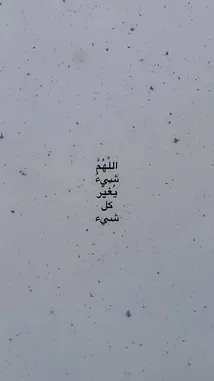 اللَّهُمَّ
شَيْءٌ
يُغيّر
كل
شيء